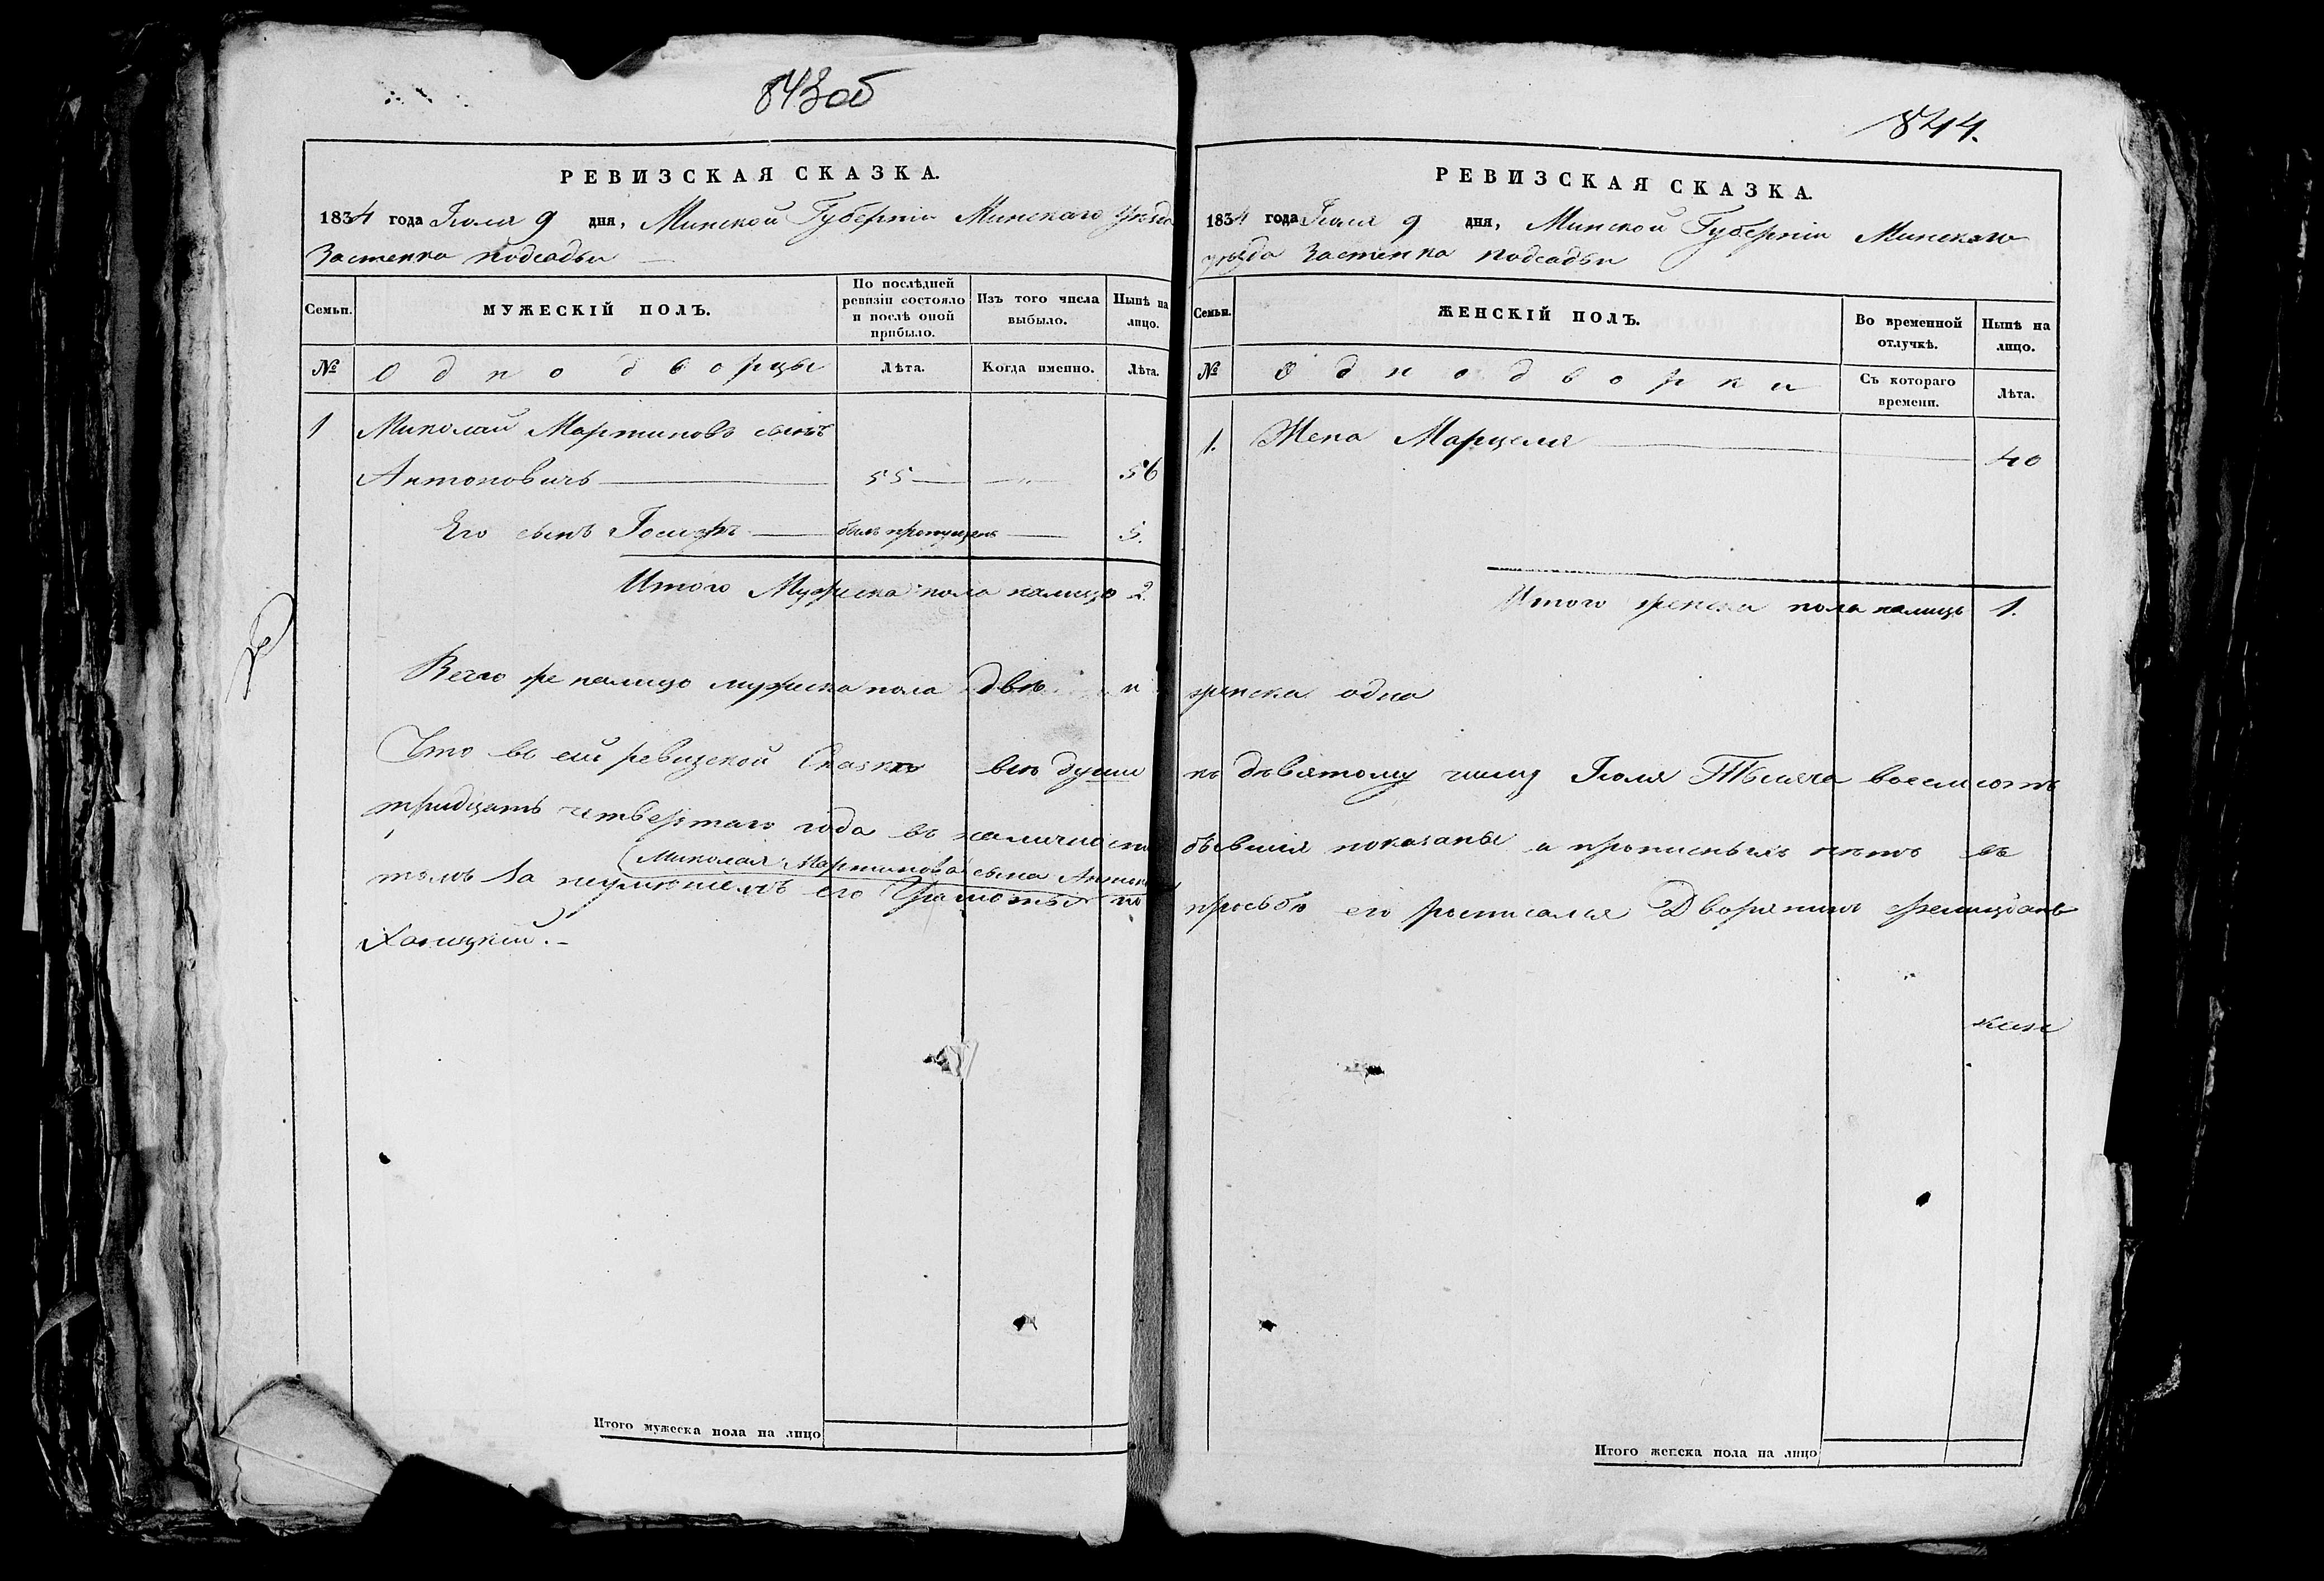 843об
РЕВИЗСКАЯ СКАЗКА.
1834 года Іюля 9 дня, Минской Губерніи Минскаго уезда
Застенка Подсады
Семьи.
МУЖЕСКІЙ ПОЛЪ.
По послѣдней ревизіи состояло и послѣ оной прибыло.
Изъ того числа выбыло.
Нынѣ на лицо.
№
Однодворцы
Лѣта.
Когда именно.
Лѣта.
1 Миколай Мартиновъ сынъ
Антоновичъ 55 — „ — 56
Его сынъ Іосифъ — былъ пропущенъ — 5.
Итого Мужеска пола налицо 2.
Всего же налицо мужеска пола двѣ и
Что въ сей ревизской Сказкѣ всѣ души
тридцать четвертаго года въ наличности
Миколая Мартинова сына
томъ За неумѣніемъ его Грамоты по
Халицкій.
Итого мужеска пола на лицо
844.
РЕВИЗСКАЯ СКАЗКА.
1834 года Іюля 9 дня, Минской Губерніи Минскаго
уезда Застенка Подсады
Семьи.
ЖЕНСКІЙ ПОЛЪ.
Во временной отлучкѣ.
Нынѣ на лицо.
№
Однодворки
Съ котораго времени.
Лѣта.
1. Жена Марцеля 40
Итого женска пола налицо 1.
женска одна
къ девятому числу Іюля Тысяча восемсотъ
бывшия показаны а прописныхъ нѣтъ въ
просьбѣ его росписался Дворянинъ Фелиціанъ
Итого женска пола на лицо